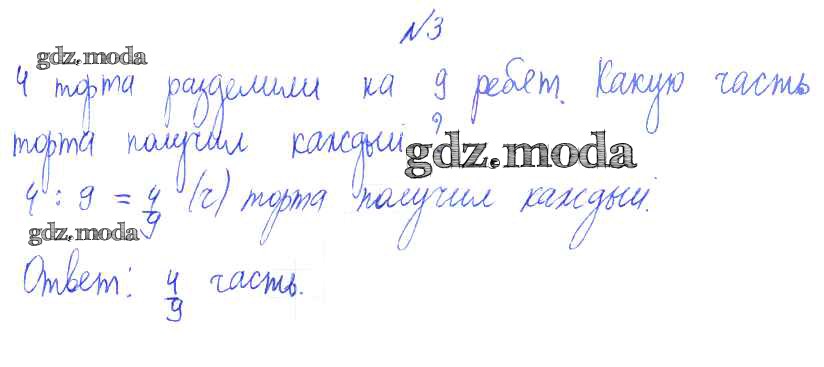 №3
gdz.moda
4 торта разделили на 9 ребят. Какую часть
торта получил каждый?
gdz.moda
4 : 9 = 4/9 (ч) торта получил каждый.
gdz.moda
Ответ: 4/9 часть.